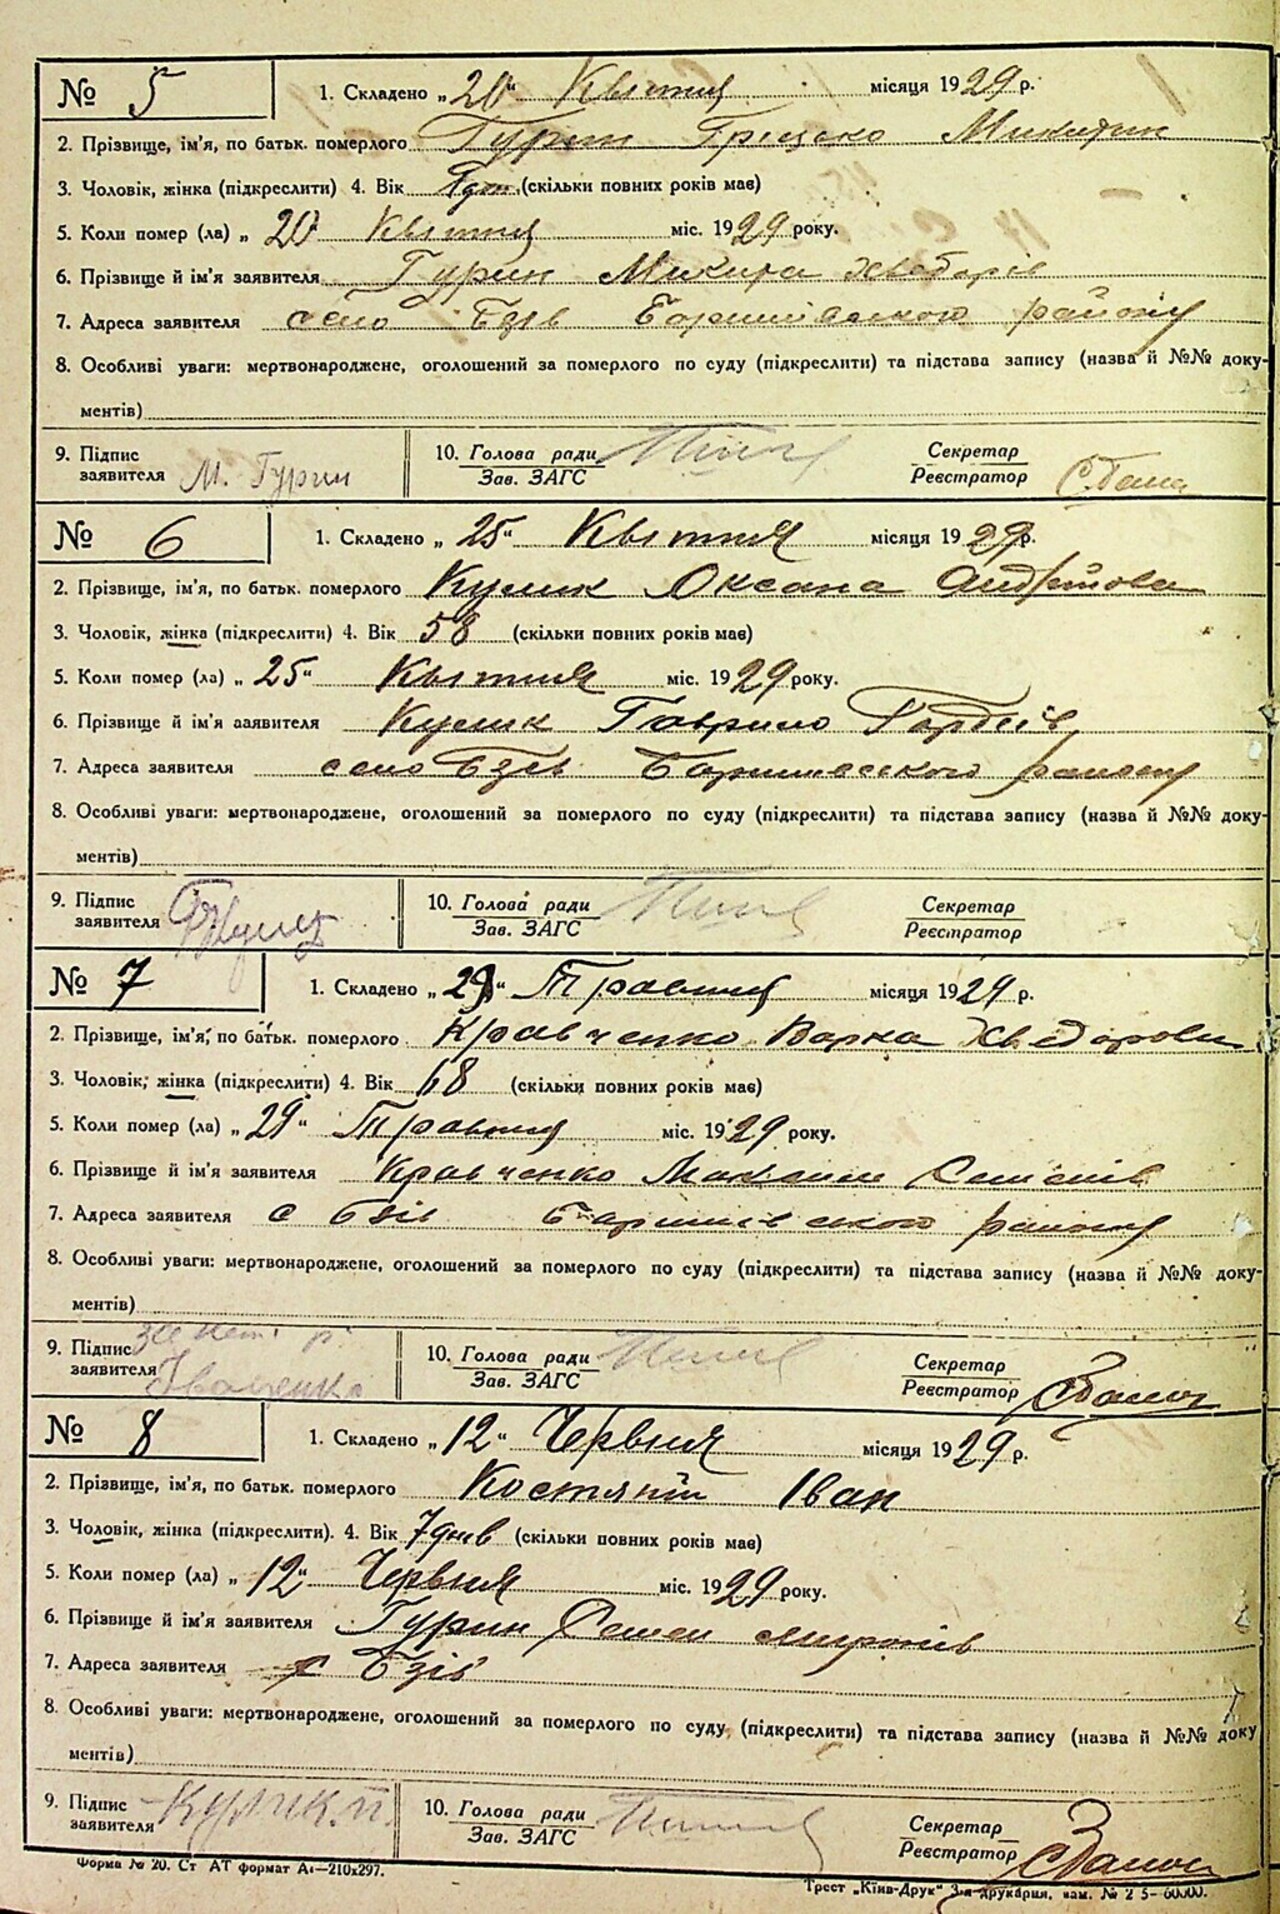 № 5 1. Складено „20“ Квітня місяця 1929 р.
2. Прізвище, ім'я, по батьк. померлого Гурин Грицько Микитин
3. Чоловік, жінка (підкреслити) 4. Вік (скільки повних років має)
5. Коли помер (ла) „ 20 Квітня міс. 1929 року.
6. Прізвище й ім'я заявителя Гурин Микита Хведорів
7. Адреса заявителя село Бзів Баришівського району
8. Особливі уваги: мертвонароджене, оголошений за померлого по суду (підкреслити) та підстава запису (назва й №№ доку-
ментів)
9. Підпис заявителя М. Гурин 10. Голова ради Зав. ЗАГС Секретар Реєстратор
№ 6 1. Складено „25“ Квітня місяця 1929 р.
2. Прізвище, ім'я, по батьк. померлого Кулик Оксана Андріїова
3. Чоловік, жінка (підкреслити) 4. Вік 58 (скільки повних років має)
5. Коли помер (ла) „25“ Квітня міс. 1929 року.
6. Прізвище й ім'я заявителя Кулик Гаврило Гордіїв
7. Адреса заявителя село Бзів Баришівського району
8. Особливі уваги: мертвонароджене, оголошений за померлого по суду (підкреслити) та підстава запису (назва й №№ доку-
ментів)
9. Підпис заявителя 10. Голова ради Зав. ЗАГС Секретар Реєстратор
№ 7 1. Складено „29“ Травня місяця 1929 р.
2. Прізвище, ім'я, по батьк. померлого Кравченко Варка Хведорова
3. Чоловік, жінка (підкреслити) 4. Вік 68 (скільки повних років має)
5. Коли помер (ла) „29“ Травня міс. 1929 року.
6. Прізвище й ім'я заявителя Кравченко Максим Семенів
7. Адреса заявителя с Бзів Баришівського району
8. Особливі уваги: мертвонароджене, оголошений за померлого по суду (підкреслити) та підстава запису (назва й №№ доку-
ментів)
9. Підпис заявителя за Іващенко 10. Голова ради Зав. ЗАГС Секретар Реєстратор
№ 8 1. Складено „12“ Червня місяця 1929 р.
2. Прізвище, ім'я, по батьк. померлого Іван
3. Чоловік, жінка (підкреслити). 4. Вік 7 днів (скільки повних років має)
5. Коли помер (ла) „12“ Червня міс. 1929 року.
6. Прізвище й ім'я заявителя Гурин Семен Миронів
7. Адреса заявителя с Бзів
8. Особливі уваги: мертвонароджене, оголошений за померлого по суду (підкреслити) та підстава запису (назва й №№ доку
ментів)
9. Підпис заявителя Кулик. П. 10. Голова ради Зав. ЗАГС Секретар Реєстратор
Форма № 20. Ст АТ формат А₄—210x297.
Трест „Київ-Друк“ 3-я друкарня, зам.